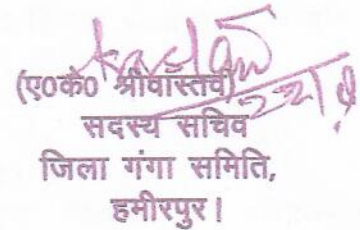 (ए०के० श्रीवास्तव)
सदस्य सचिव
जिला गंगा समिति,
हमीरपुर।